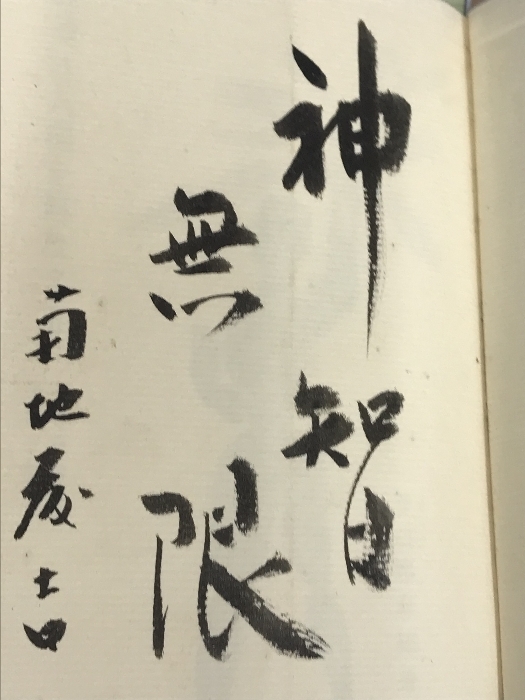 神智
無限
菊地慶吉